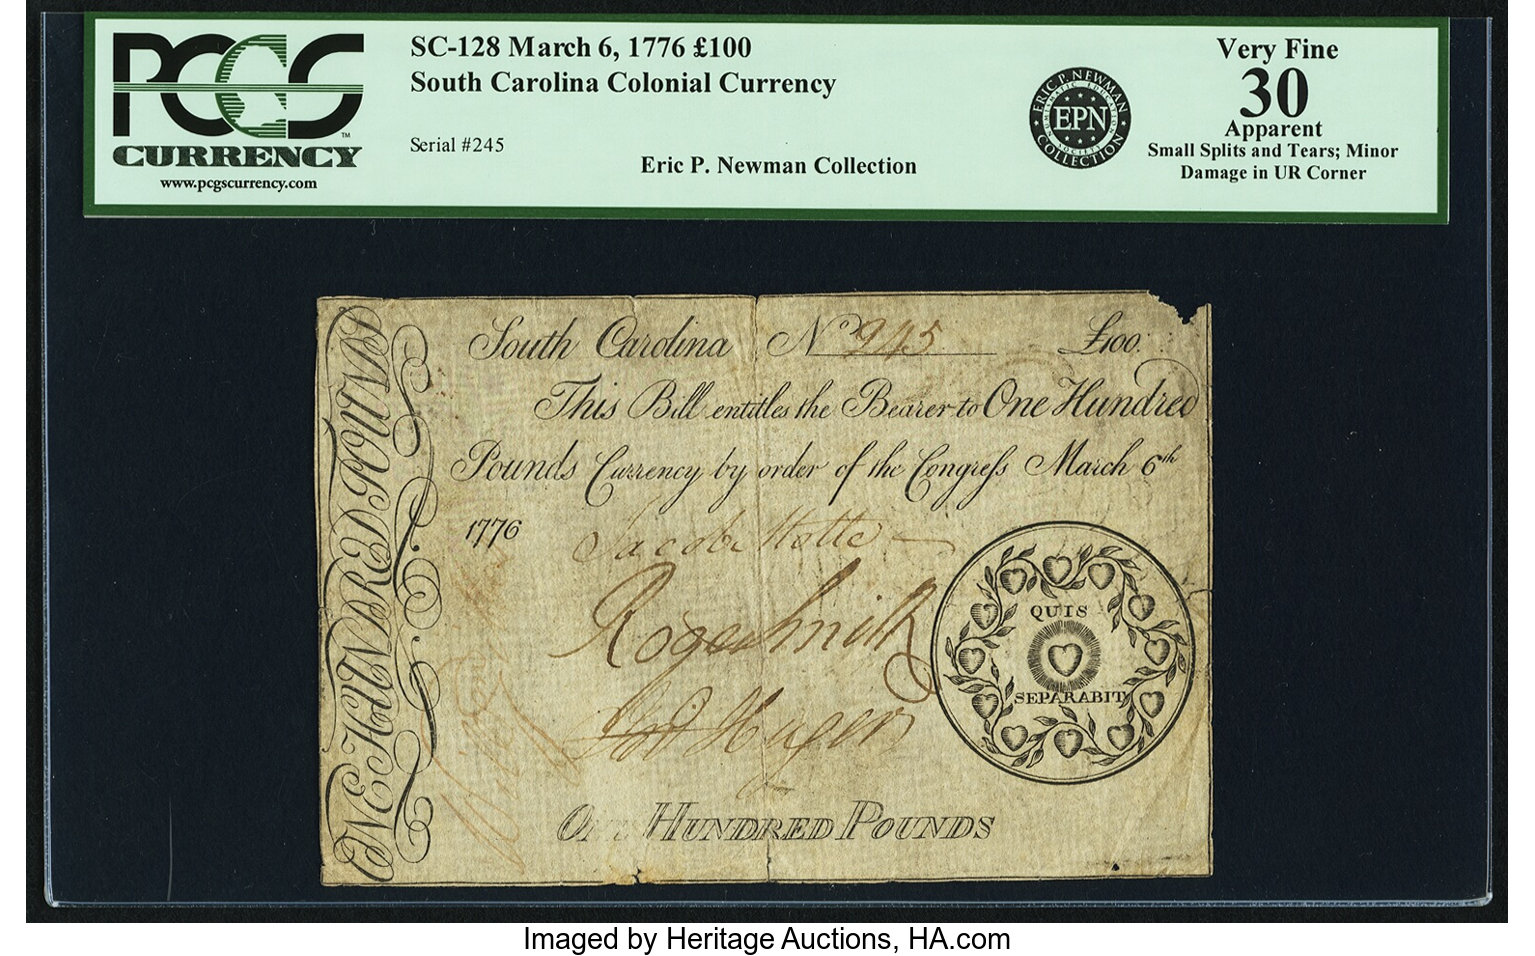 PCGS
CURRENCY
™
www.pcgscurrency.com
SC-128 March 6, 1776 £100
South Carolina Colonial Currency
Serial #245
Eric P. Newman Collection
ERIC P. NEWMAN
NUMISMATIC EDUCATION
EPN
SOCIETY
COLLECTION
Very Fine
30
Apparent
Small Splits and Tears; Minor
Damage in UR Corner
ONE HUNDRED POUNDS
South Carolina No 245 £100.
This Bill entitles the Bearer to One Hundred
Pounds Currency by order of the Congress March 6th
1776
Jacob Motte
Roger Smith
Huger
QUIS
SEPARABIT
ONE HUNDRED POUNDS
Imaged by Heritage Auctions, HA.com